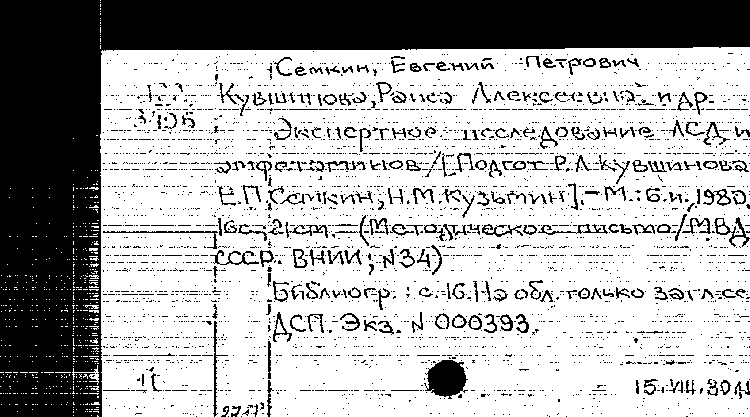 Семкин, Евгений Петрович
Кувшинова, Раиса Алексеевна и др.
Экспертное исследование ЛСД и
амфетаминов / [Подгот. Р.А. Кувшинова
Е.П. Семкин, Н.М. Кузьмин]. – М.: Б.и., 1980.
16с.; 21 cm. – (Методическое письмо / МВД
СССР. ВНИИ; N 34)
Библиогр.: с. 16. На обл. только загл. се
ДСП. Экз. N 000393.
15.VIII.80